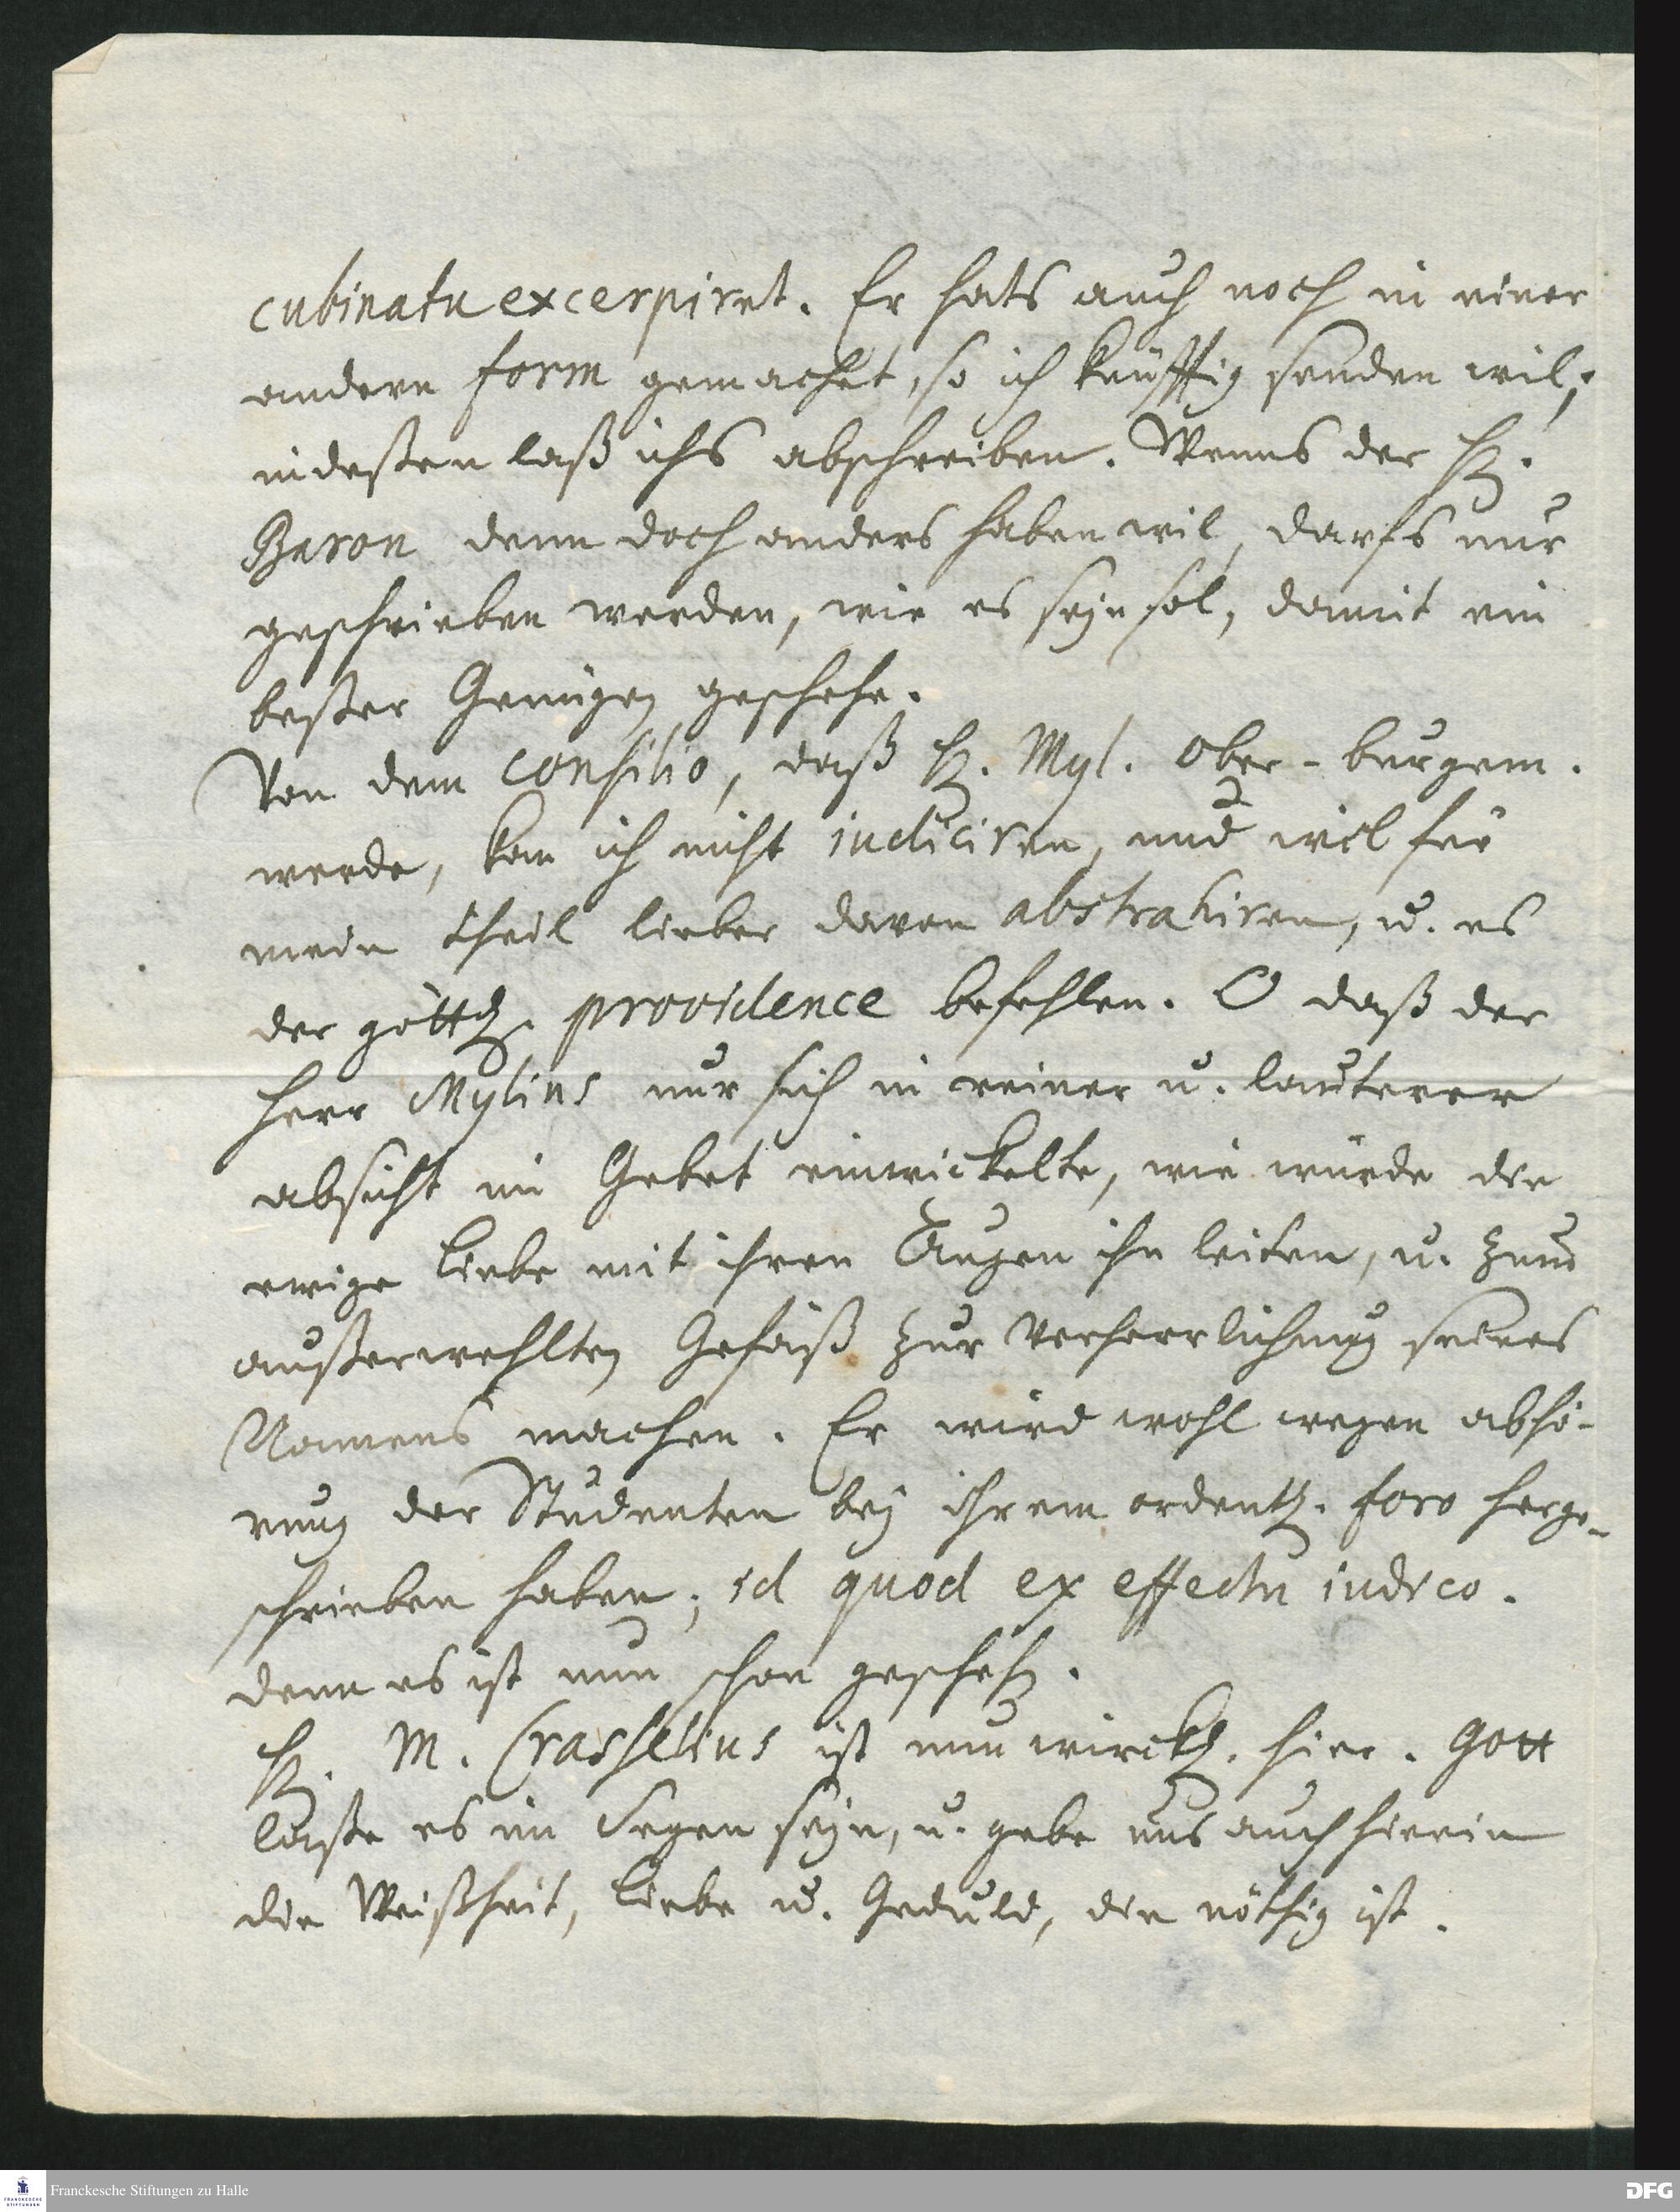 cubinatu excerpiret. Er hats auch noch in einer
andern form gemachet, so ich künfftig senden wil;
indeßen laß ichs abschreiben. Wenns der H.
Baron denn doch anders haben wil, darfs nur
geschrieben werden, wie es seyn sol, damit ein
beßer Genügen geschehe.
Von dem consilio, daß H. Myl. Ober-burgem.
werde, kan ich nicht iudiciren, und wil für
mein theil lieber davon abstrahiren, u. es
der göttl. providence befehlen. O daß der
Herr Mylius nur sich in reiner u. lauterer
absicht im Gebet einwickelte, wie würde die
ewige Liebe mit ihren Augen ihn leiten, u. zum
außerwehlten Gefäß zur Verherrlichung seines
Namens machen. Er wird wohl wegen abhö-
rung der Studenten bey ihrem ordentl. foro herge-
schrieben haben; id quod ex effectu iudico.
denn es ist nun schon geschehen.
H. M. Crasselius ist nun wirckl. hier. Gott
laße es im Segen seyn, u. gebe uns auch hierin
die Weißheit, Liebe u. Geduld, die nöthig ist.
Franckesche Stiftungen zu Halle
DFG